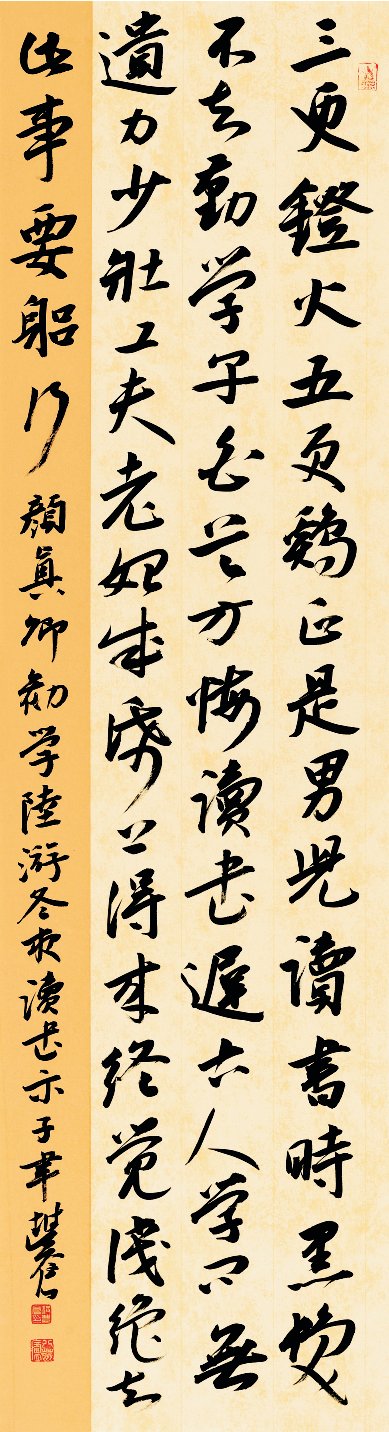 三更鐙火五更鷄正是男兒讀書時黑髮
不知勤学早白首方悔讀书遲古人学问無
遺力少壯工夫老始成帋上得来終觉淺絶知
此事要躳行 顏真卿勸学陸游冬夜讀书示子聿